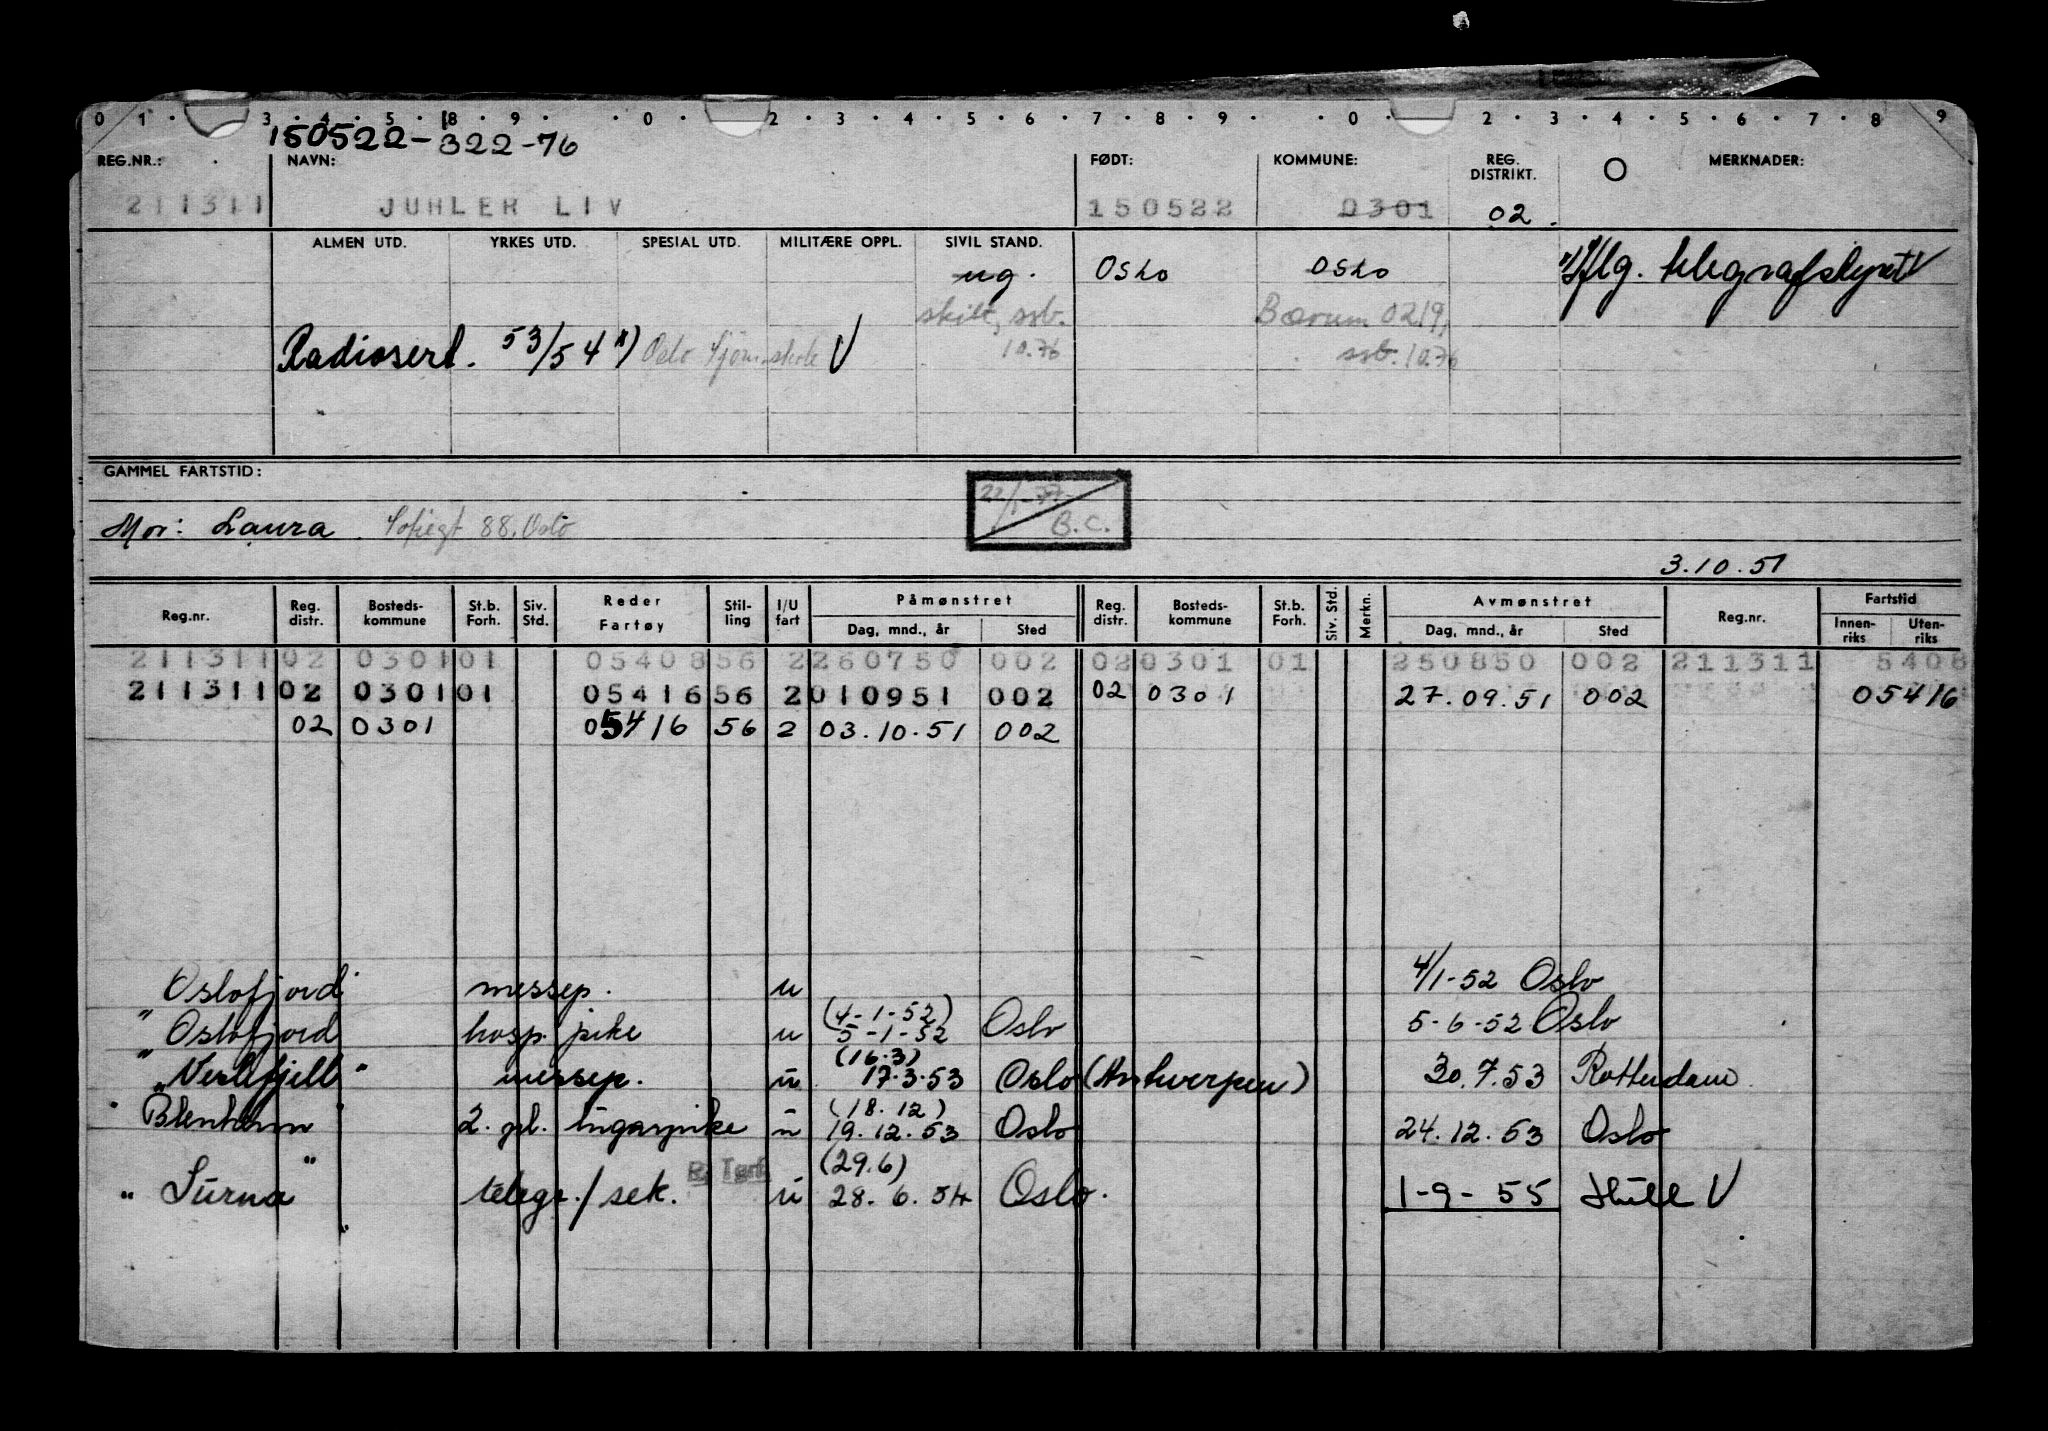 0 1 3 4 5 8 9 0 2 3 4 5 6 7 8 9 0 2 3 4 5 6 7 8 9
150522-322-76
REG.NR.: NAVN: FØDT: KOMMUNE: REG. DISTRIKT. O MERKNADER:
211311 JUHLER LIV 150522 0301 02
ALMEN UTD. YRKES UTD. SPESIAL UTD. MILITÆRE OPPL. SIVIL STAND.
ug. Oslo Oslo x) iflg. telegrafstyret V
skilt, ssb. 10.76 Bærum 0219, ssb. 10.76
Radiosert. 53/54 x) Oslo Sjøm.skole V
GAMMEL FARTSTID:
22/1-77 B.C.
Mor: Laura Sofiegt 88. Oslo
3.10.51
Reg.nr. Reg. distr. Bosteds-kommune St.b. Forh. Siv. Std. Reder Fartøy Stil-ling I/U fart Påmønstret Dag, mnd., år Sted Reg. distr. Bosteds-kommune St.b. Forh. Siv. Std. Merkn. Avmønstret Dag, mnd., år Sted Reg.nr. Fartstid Innen-riks Uten-riks
211311 02 0301 01 05408 56 2 260750 002 02 0301 01 250850 002 211311 5408
211311 02 0301 01 05416 56 2 010951 002 02 0301 27.09.51 002 05416
02 0301 05416 56 2 03.10.51 002
"Oslofjord" messep. u 4/1-52 Oslo
"Oslofjord" hosp. pike u (4-1-52) 5-1-52 Oslo 5-6-52 Oslo
"Veslefjell" messep. u (16.3) 17.3.53 Oslo (Antwerpen) 30.7.53 Rotterdam
"Blenheim" 2. gr. lugarpike u (18.12) 19.12.53 Oslo 24.12.53 Oslo
"Surna" telegr./sek. u (29.6) 28.6.54 Oslo. 1-9-55 Hull V